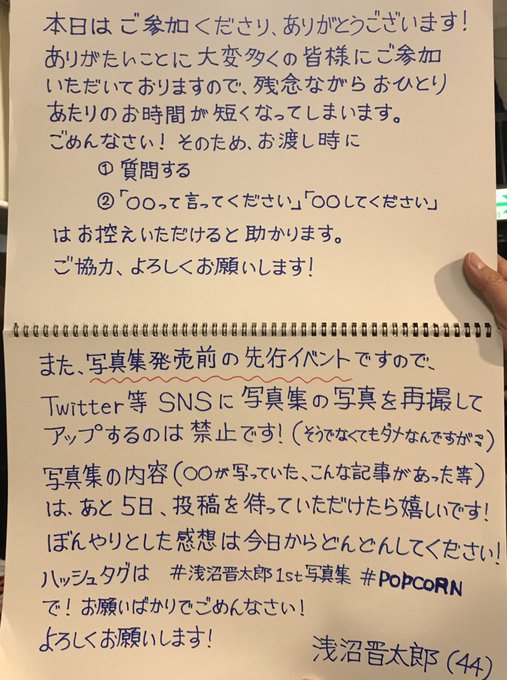 本日はご参加くださり、ありがとうございます!
ありがたいことに大変多くの皆様にご参加
いただいておりますので、残念ながらおひとり
あたりのお時間が短くなってしまいます。
ごめんなさい!そのため、お渡し時に
① 質問する
②「〇〇って言ってください」「〇〇してください」
はお控えいただけると助かります。
ご協力、よろしくお願いします!
また、写真集発売前の先行イベントですので、
Twitter等SNSに写真集の写真を再撮して
アップするのは禁止です!(そうでなくてもダメなんですが)
写真集の内容(〇〇が写っていた、こんな記事があった等)
は、あと5日、投稿を待っていただけたら嬉しいです!
ぼんやりとした感想は今日からどんどんしてください!
ハッシュタグは #浅沼晋太郎1st写真集 #POPCORN
で!お願いばかりでごめんなさい!
よろしくお願いします!
浅沼晋太郎(44)